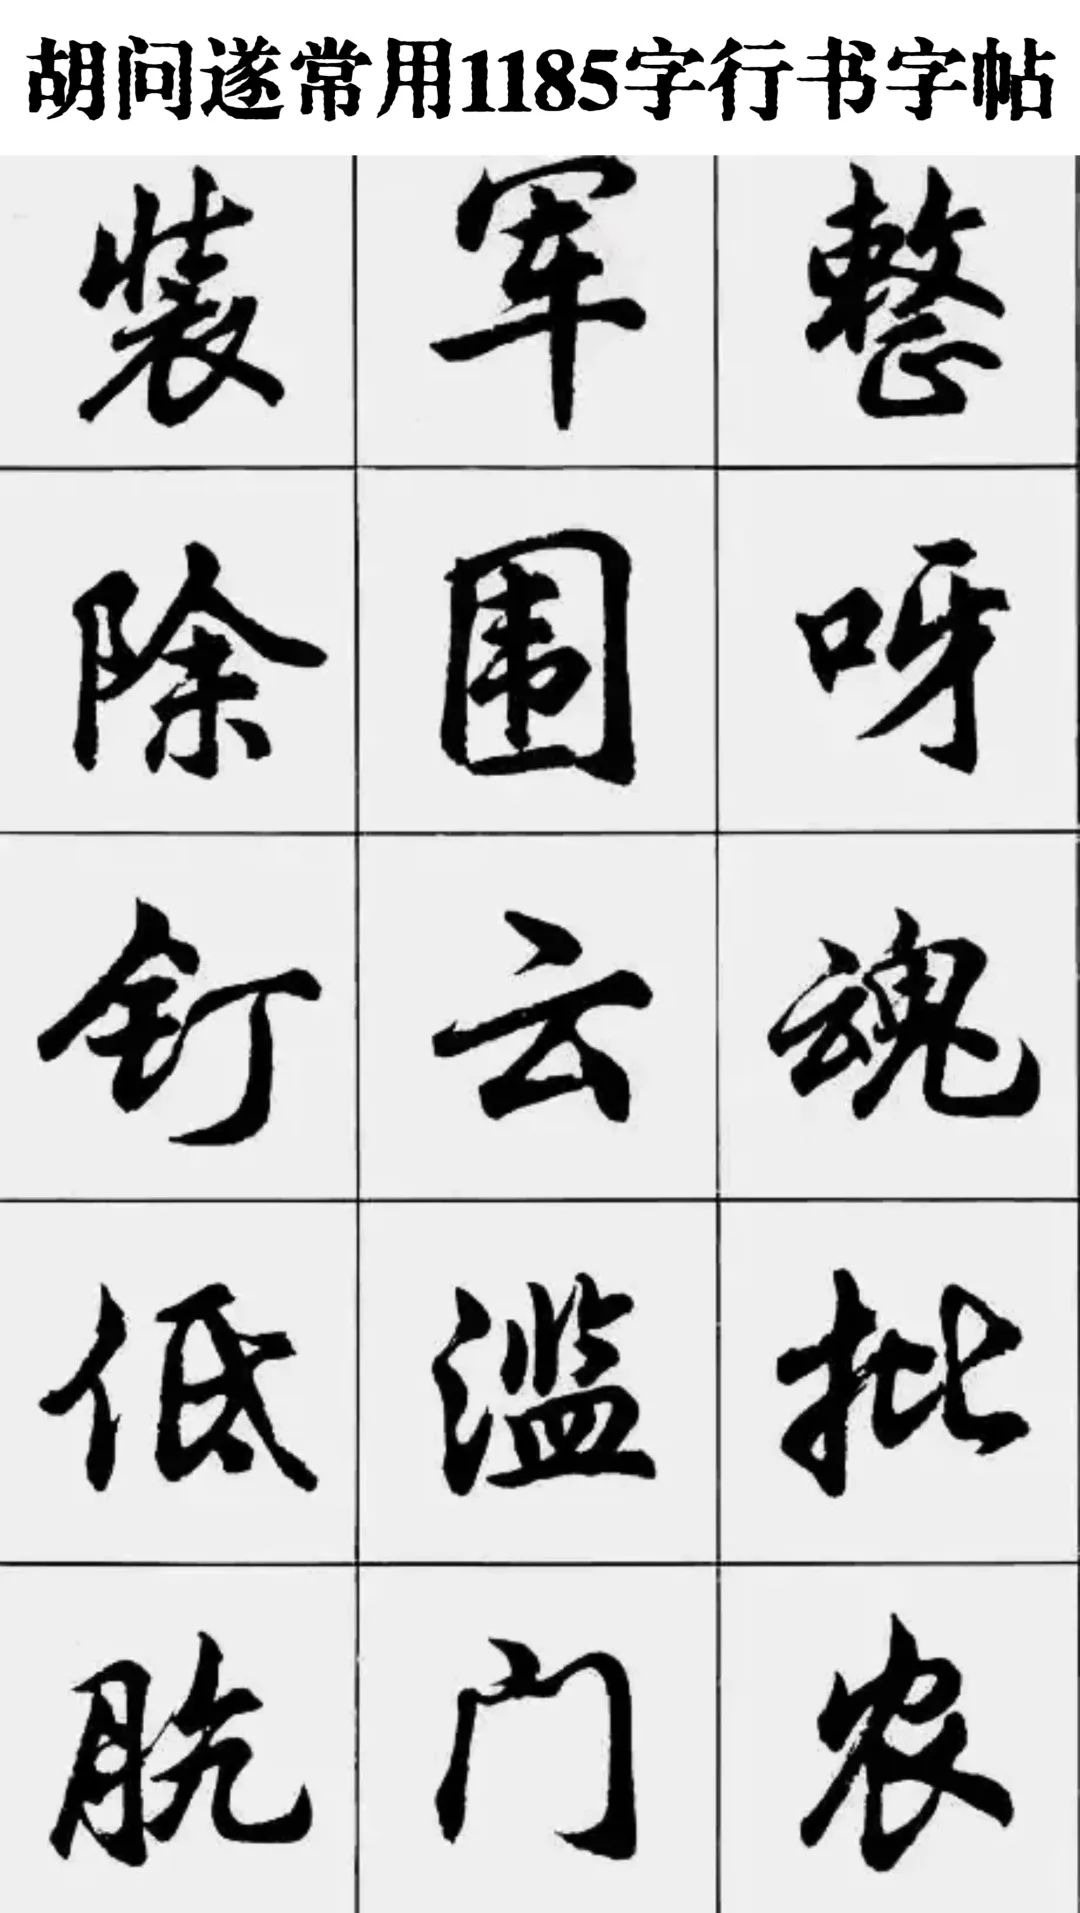 胡问遂常用1185字行书字帖
装军整
除围呀
钉云魂
低滥批
脱门农